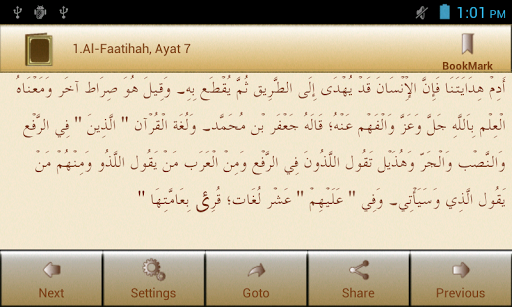 1:01 PM
1.Al-Faatihah, Ayat 7
BookMark
أَدِمْ هِدَايَتَنَا فَإِنَّ الْإِنْسَانَ قَدْ يُهْدَى إِلَى الطَّرِيق ثُمَّ يُقْطَع بِهِ۔ وَقِيلَ هُوَ صِرَاط آخَر وَمَعْنَاهُ
الْعِلْم بِاَللَّهِ جَلَّ وَعَزَّ وَالْفَهْم عَنْهُ؛ قَالَهُ جَعْفَر بْن مُحَمَّد۔ وَلُغَة الْقُرْآن " الَّذِينَ " فِي الرَّفْع
وَالنَّصْب وَالْجَرّ وَهُذَيْل تَقُول اللَّذُونَ فِي الرَّفْع وَمِنْ الْعَرَب مَنْ يَقُول اللَّذُو وَمِنْهُمْ مَنْ
يَقُول الَّذِي وَسَيَأْتِي۔ وَفِي " عَلَيْهِمْ " عَشْر لُغَات؛ قُرِئَ بِعَامَّتِهَا "
Next
Settings
Goto
Share
Previous